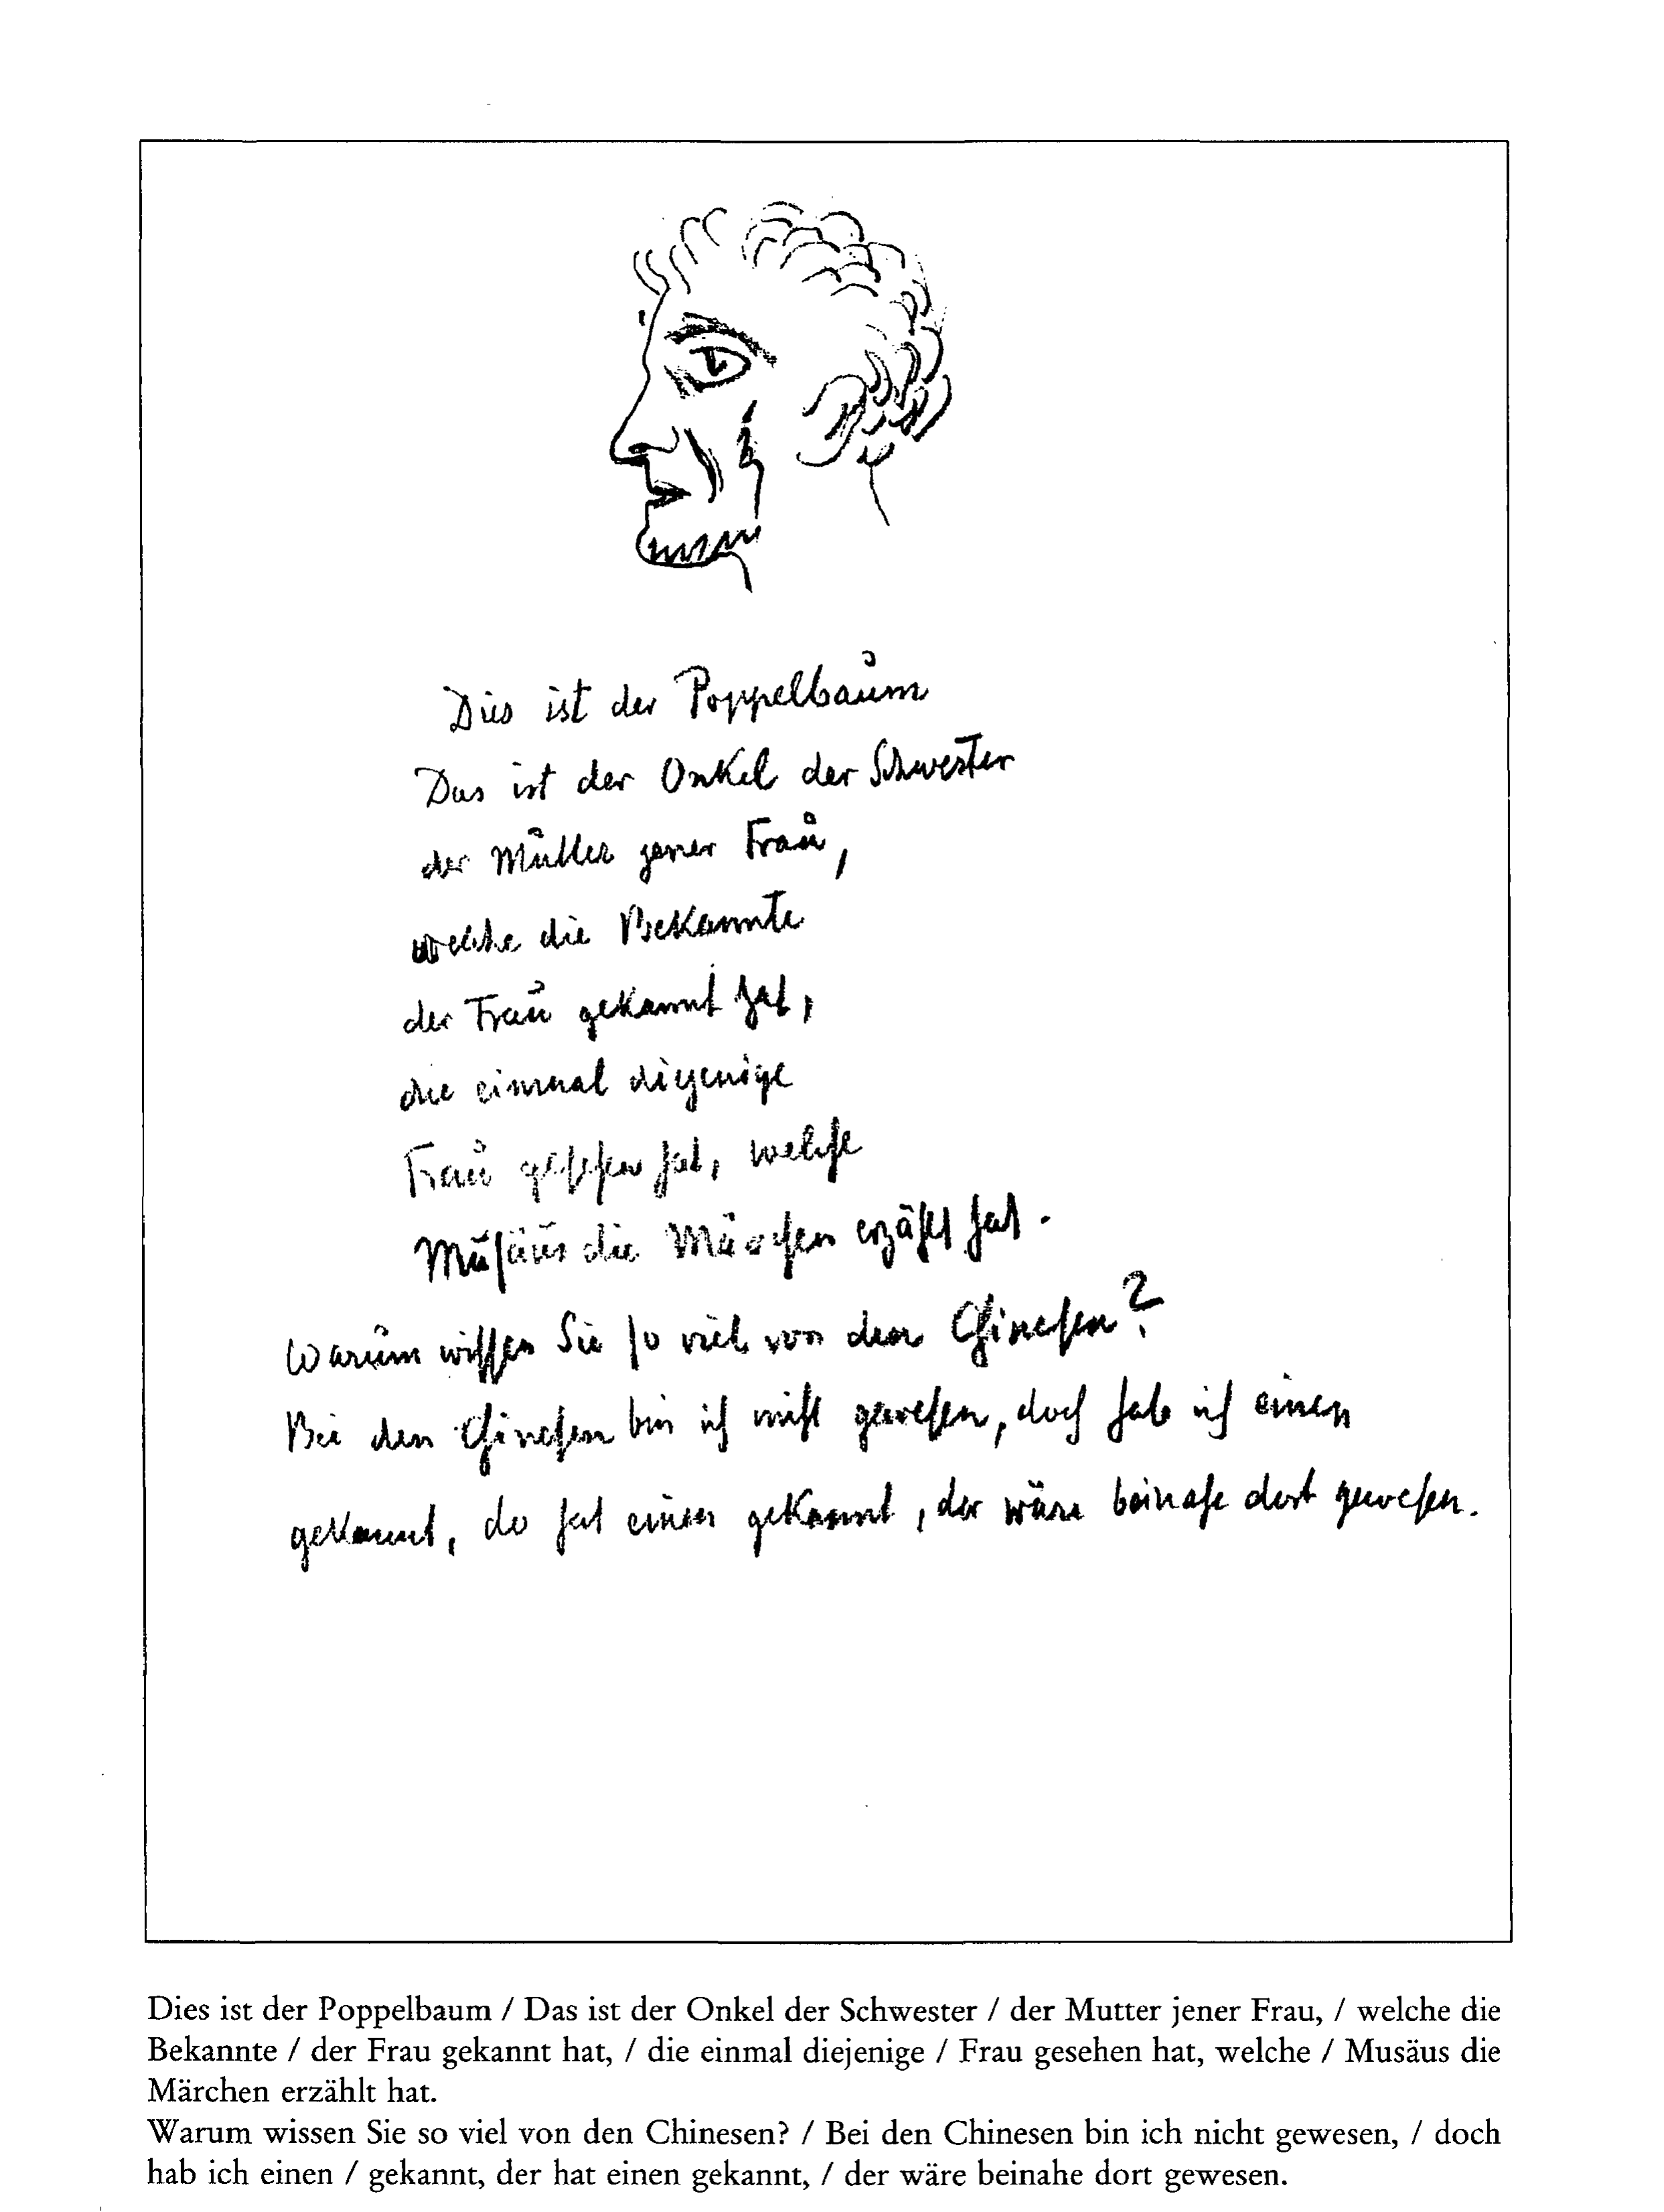 Dies ist der Poppelbaum
Das ist der Onkel der Schwester
der Mutter jener Frau,
welche die Bekannte
der Frau gekannt hat,
die einmal diejenige
Frau gesehen hat, welche
Musäus die Märchen erzählt hat.
Warum wissen Sie so viel von den Chinesen?
Bei den Chinesen bin ich nicht gewesen, doch hab ich einen
gekannt, der hat einen gekannt, der wäre beinahe dort gewesen.
Dies ist der Poppelbaum / Das ist der Onkel der Schwester / der Mutter jener Frau, / welche die
Bekannte / der Frau gekannt hat, / die einmal diejenige / Frau gesehen hat, welche / Musäus die
Märchen erzählt hat.
Warum wissen Sie so viel von den Chinesen? / Bei den Chinesen bin ich nicht gewesen, / doch
hab ich einen / gekannt, der hat einen gekannt, / der wäre beinahe dort gewesen.